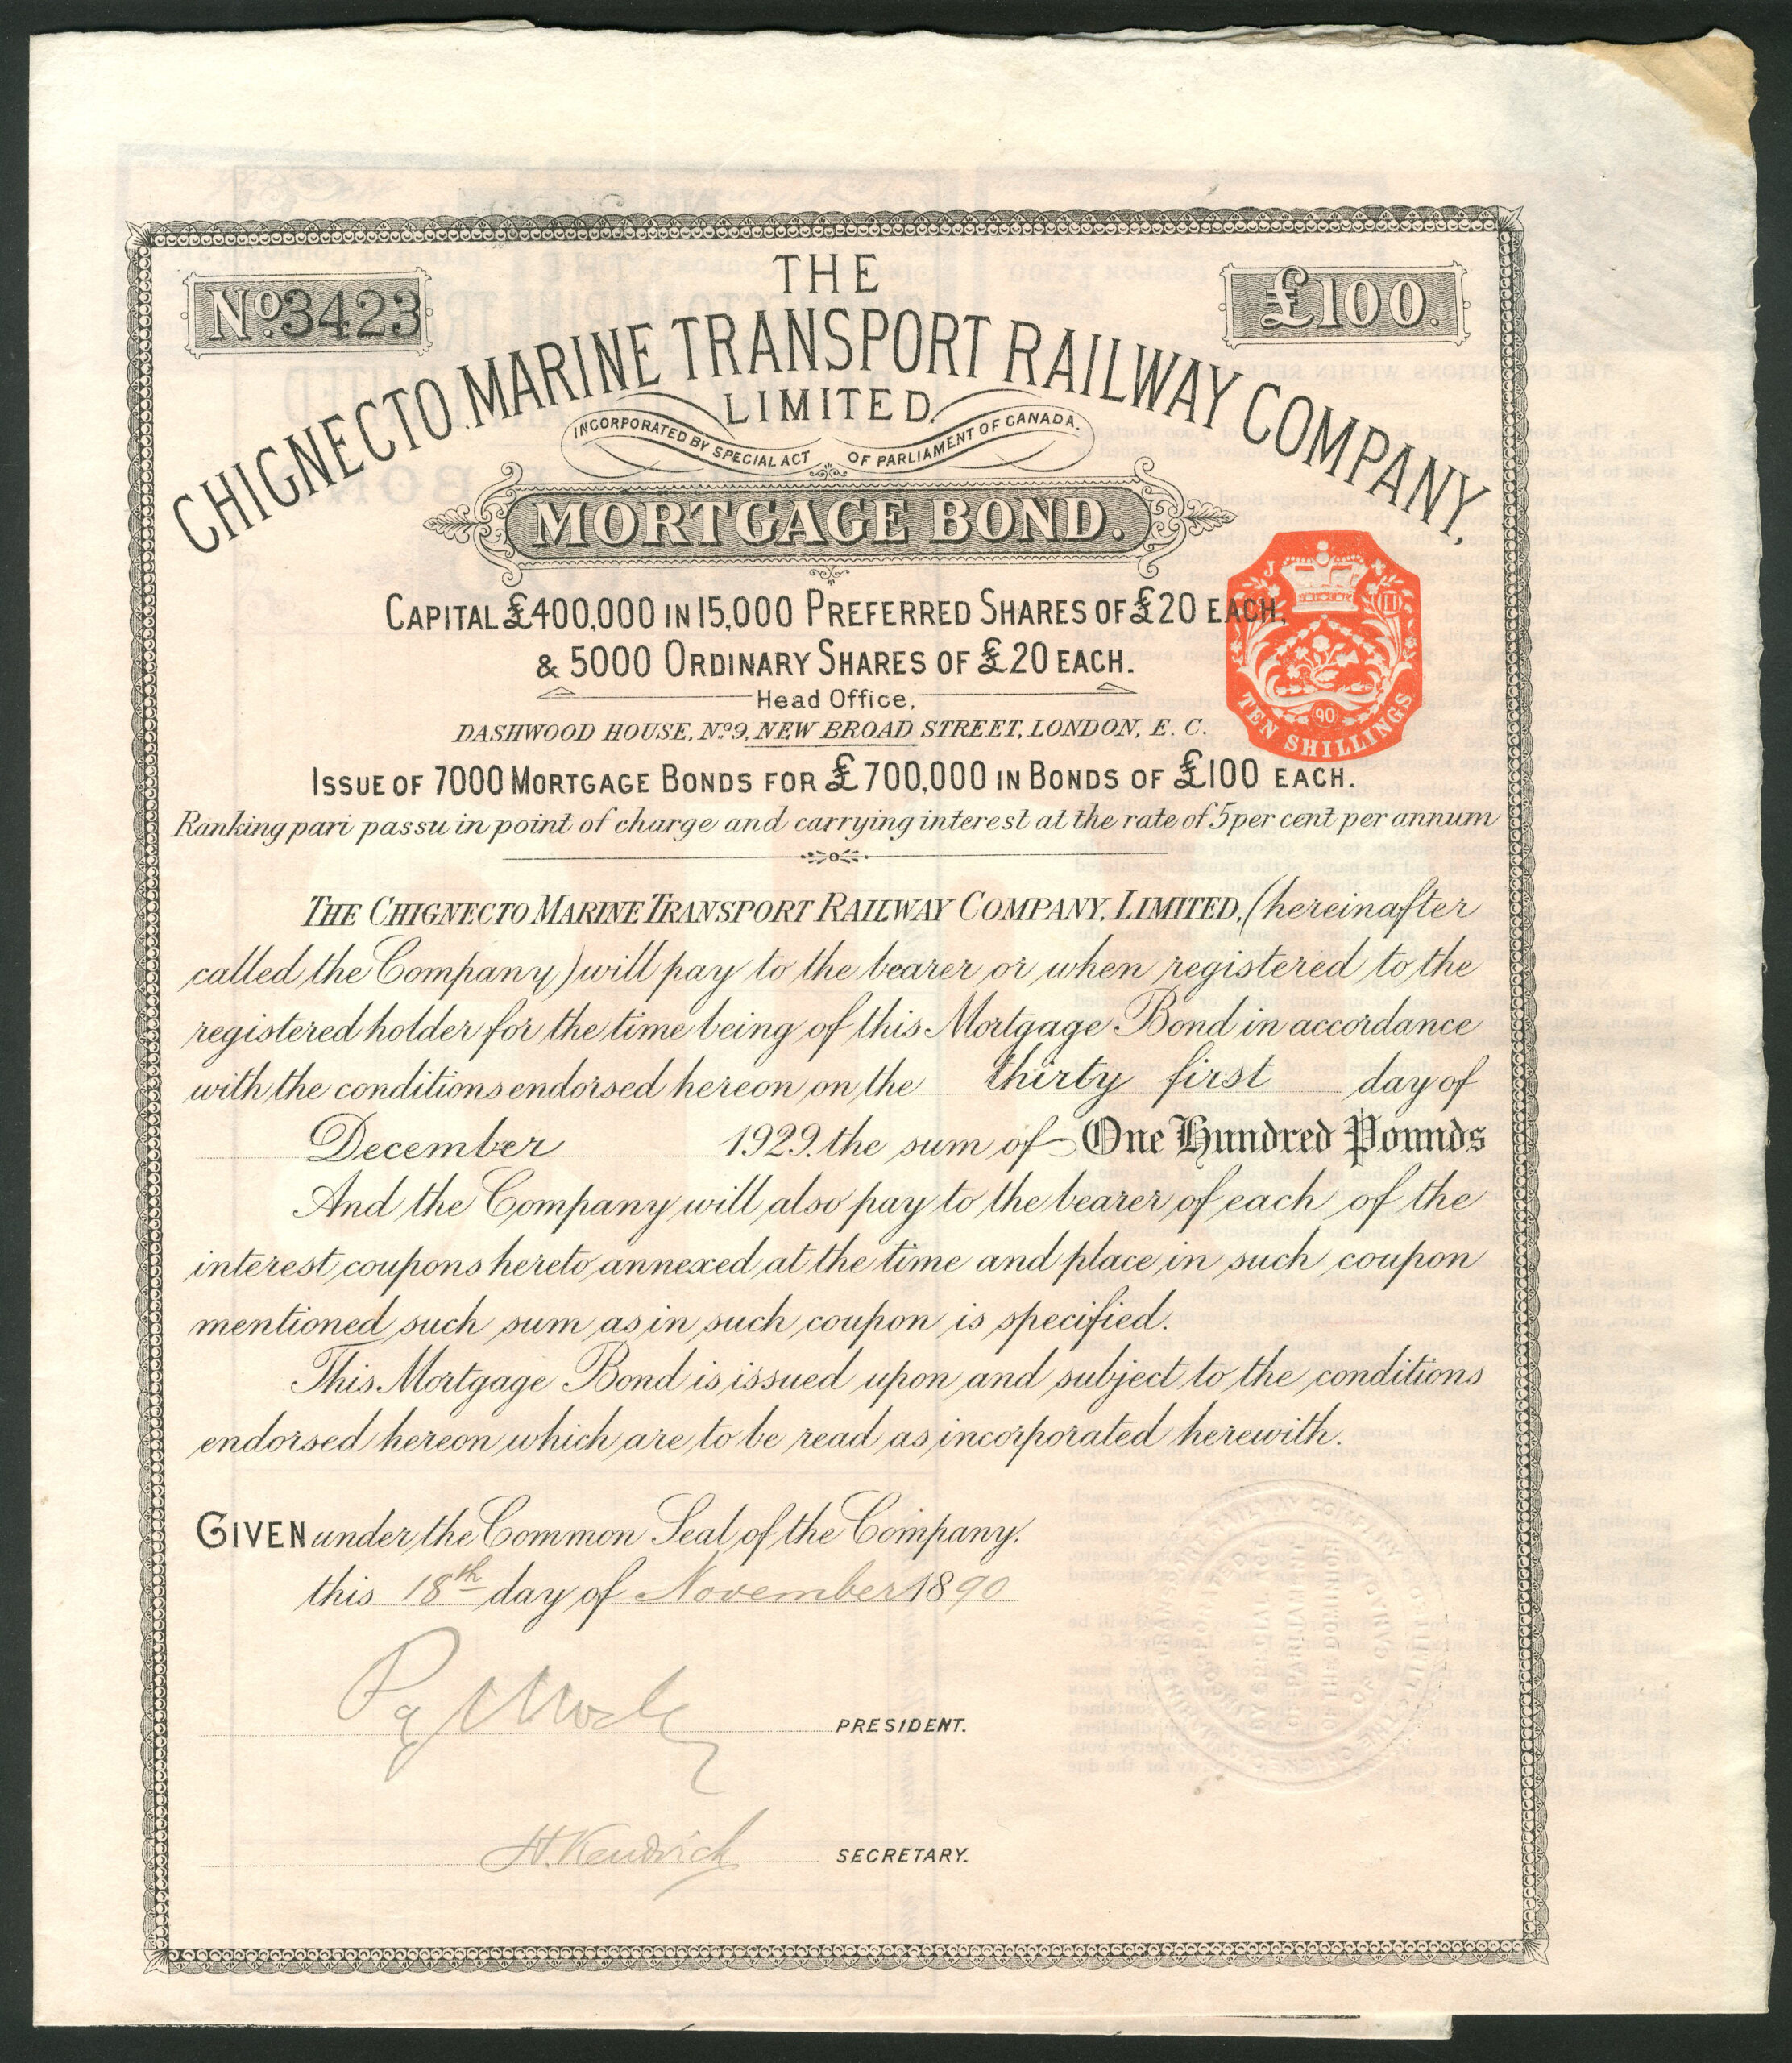 THE
No. 3423
£100.
CHIGNECTO MARINE TRANSPORT RAILWAY COMPANY,
LIMITED.
INCORPORATED BY SPECIAL ACT OF PARLIAMENT OF CANADA.
MORTGAGE BOND.
CAPITAL £400,000 IN 15,000 PREFERRED SHARES OF £20 EACH,
& 5000 ORDINARY SHARES OF £20 EACH.
Head Office,
DASHWOOD HOUSE, No. 9, NEW BROAD STREET, LONDON, E. C.
J
90
TEN SHILLINGS
ISSUE OF 7000 MORTGAGE BONDS FOR £700,000 IN BONDS OF £100 EACH.
Ranking pari passu in point of charge and carrying interest at the rate of 5 per cent per annum
THE CHIGNECTO MARINE TRANSPORT RAILWAY COMPANY, LIMITED, (hereinafter
called the Company) will pay to the bearer or when registered to the
registered holder for the time being of this Mortgage Bond in accordance
with the conditions endorsed hereon on the thirty first day of
December 1929. the sum of One Hundred Pounds
And the Company will also pay to the bearer of each of the
interest coupons hereto annexed at the time and place in such coupon
mentioned such sum as in such coupon is specified.
This Mortgage Bond is issued upon and subject to the conditions
endorsed hereon which are to be read as incorporated herewith.
GIVEN under the Common Seal of the Company.
this 18th day of November 1890
PRESIDENT.
H. Kendrick SECRETARY.
BY SPECIAL ACT
OF PARLIAMENT
OF THE DOMINION
OF CANADA